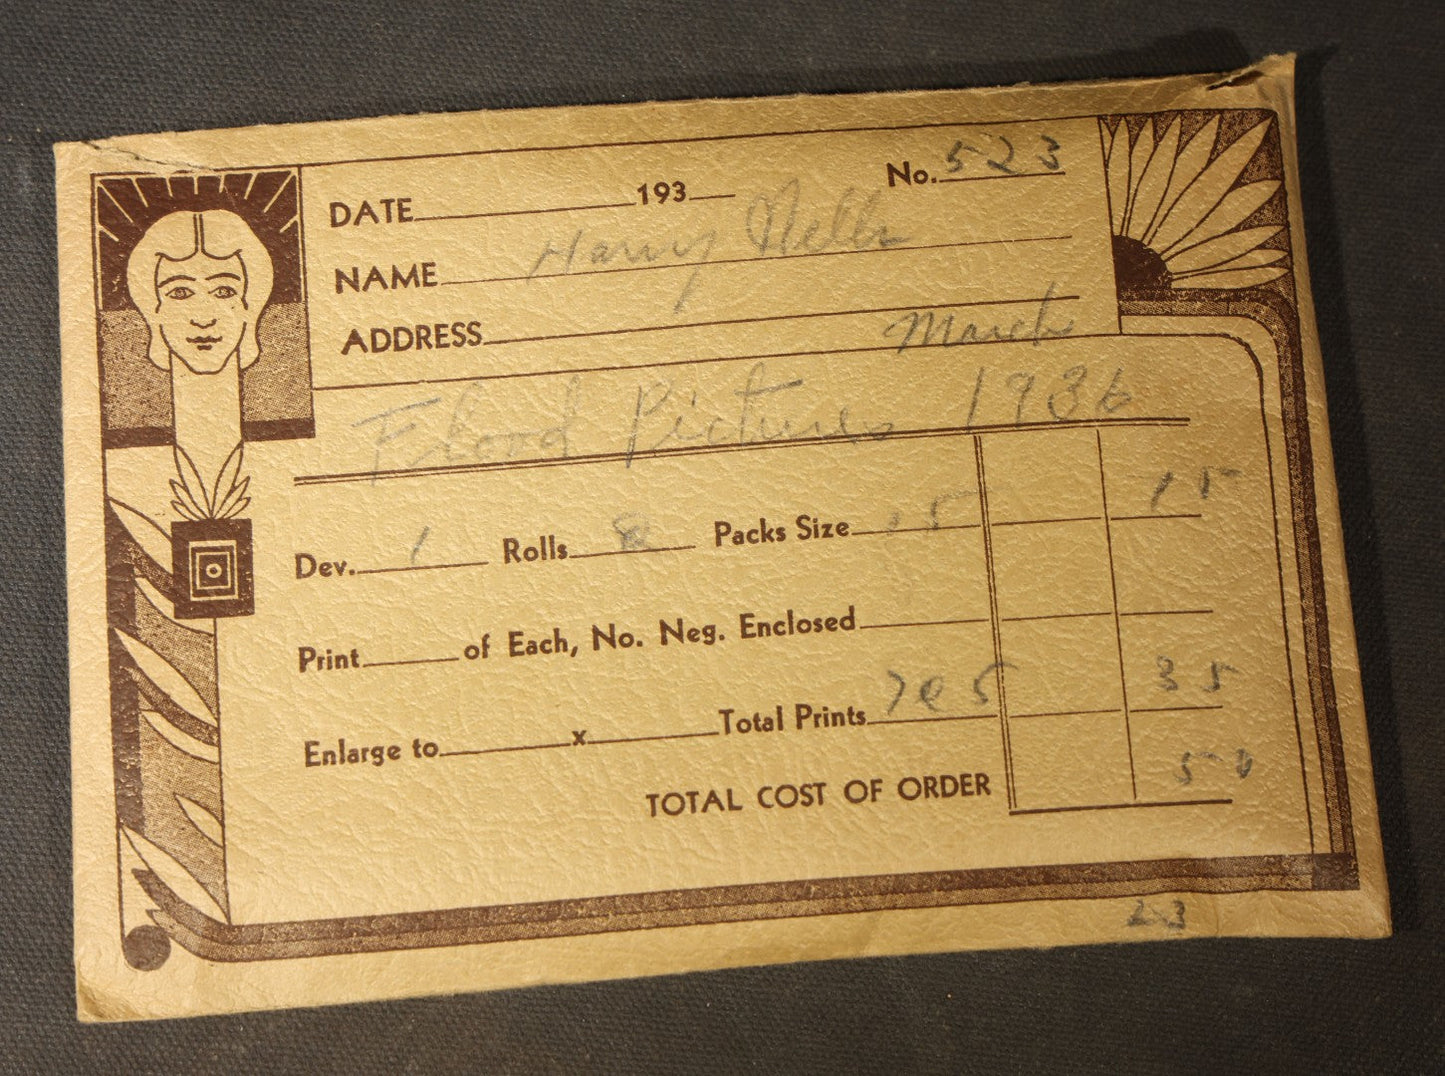 DATE 193 No. 523
NAME Harry Nells
ADDRESS
March
Flood Pictures 1936
Dev. 1 Rolls 8 Packs Size 15 15
Print of Each, No. Neg. Enclosed
Enlarge to x Total Prints 7@5 35
TOTAL COST OF ORDER 50
23